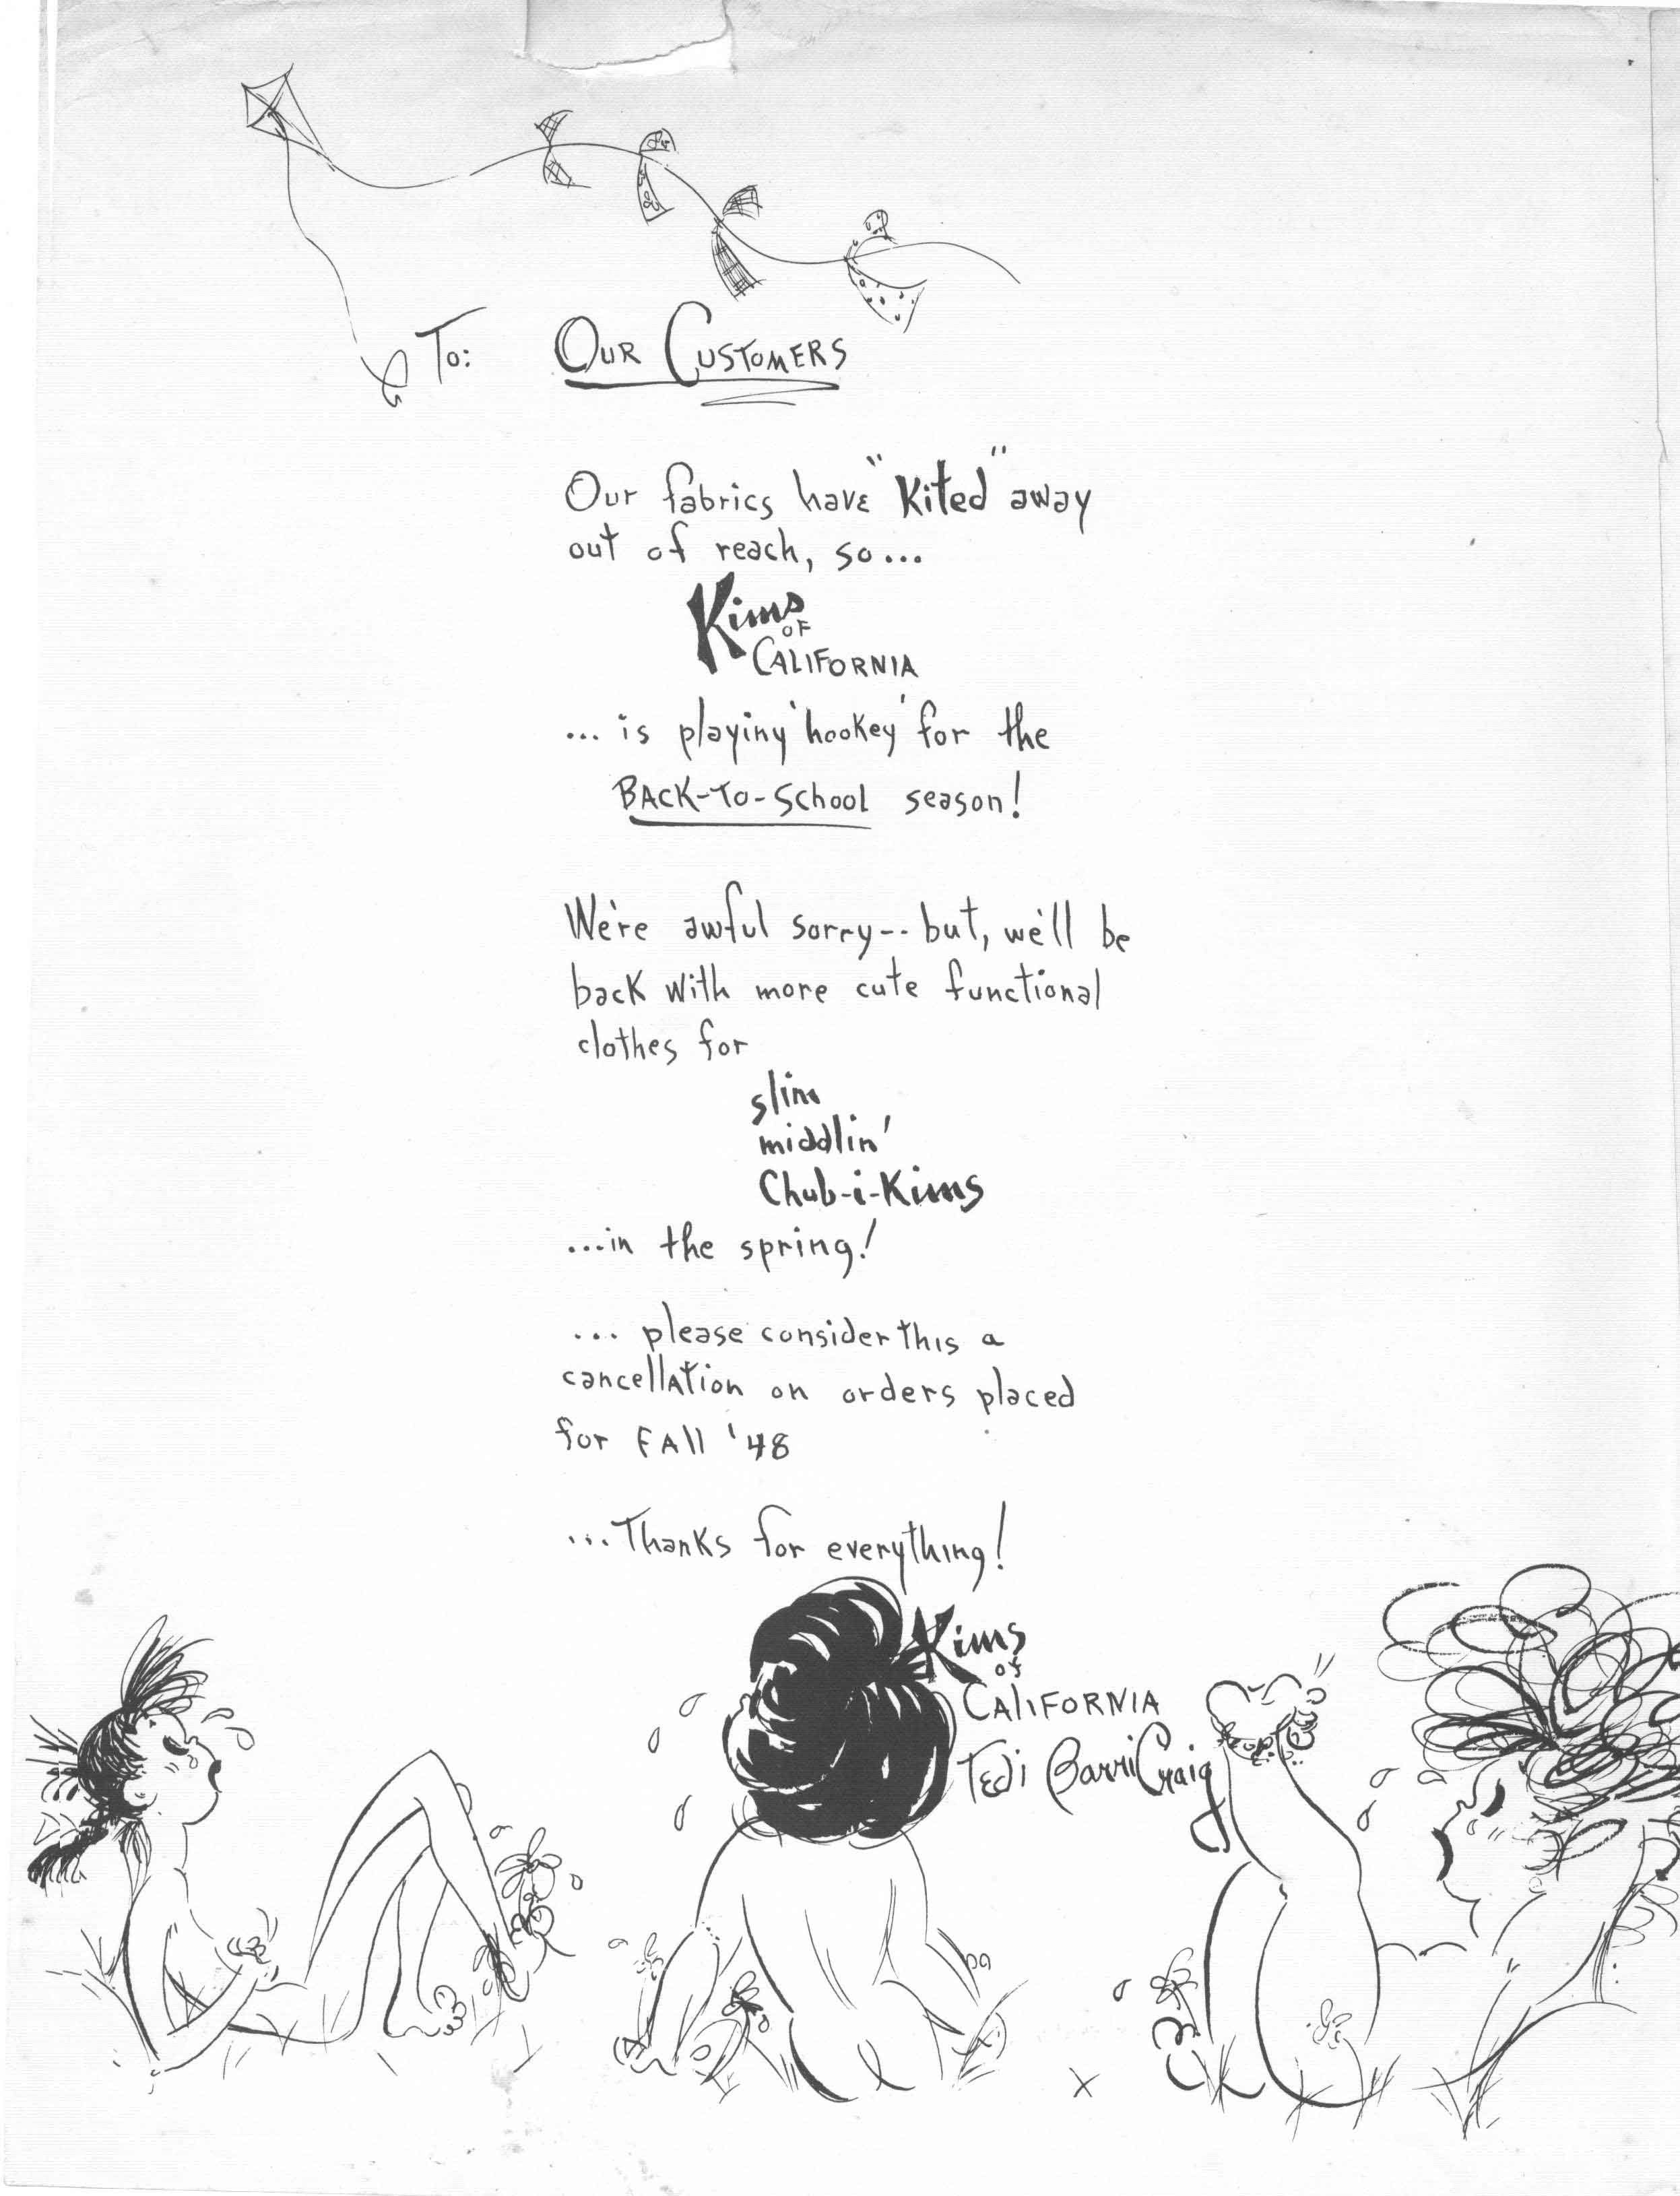 To: OUR CUSTOMERS
Our fabrics have "Kited" away
out of reach, so...
Kims
OF
CALIFORNIA
... is playing 'hookey' for the
BACK-TO-SCHOOL season!
We're awful sorry-- but, we'll be
back with more cute functional
clothes for
slim
middlin'
Chub-i-Kims
...in the spring!
... please consider this a
cancellation on orders placed
for FAll '48
...Thanks for everything!
Kims
of
CALIFORNIA
Tedi Barri Craig